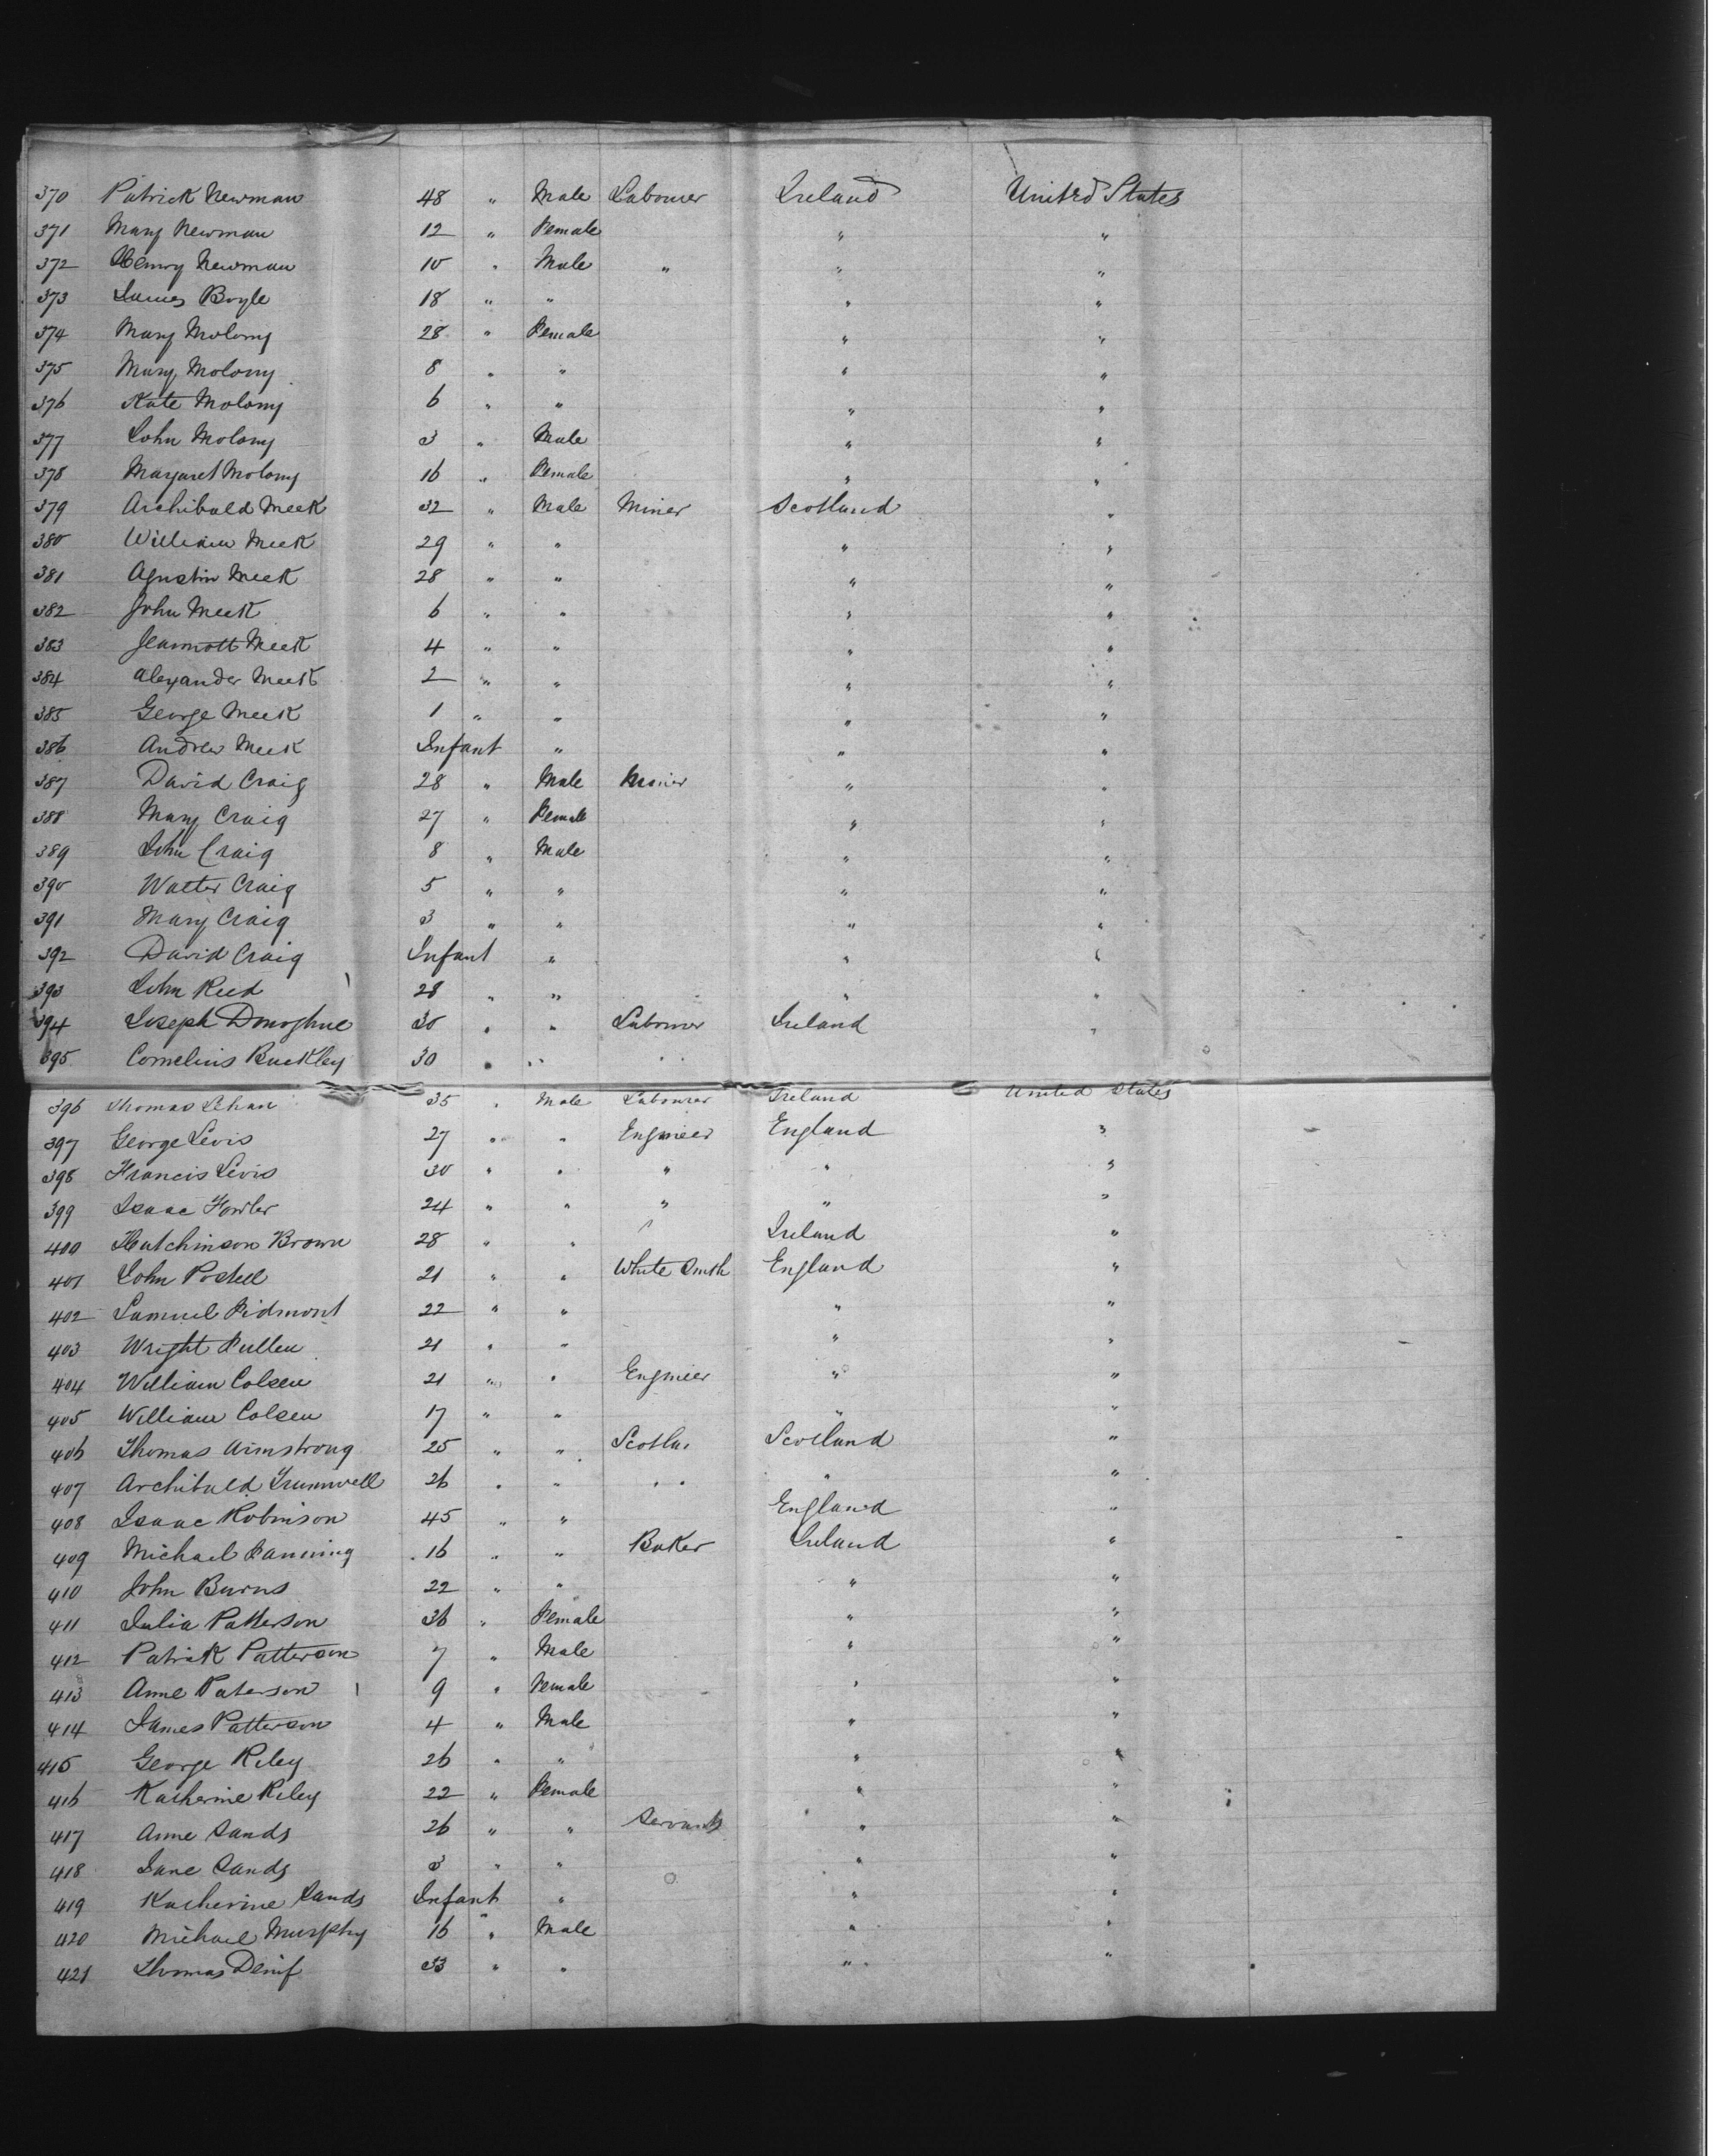 370 Patrick Newman 48 " Male Labourer Ireland United States
371 Mary Newman 12 " Female " "
372 Henry Newman 10 " Male " " "
373 James Boyle 18 " " " "
374 Mary Molony 28 " Female " "
375 Mary Molony 8 " " " "
376 Kate Molony 6 " " " "
377 John Molony 3 " Male " "
378 Margaret Molony 16 " Female " "
379 Archibald Meek 32 " Male Miner Scotland "
380 William Meek 29 " " " "
381 Agustin Meek 28 " " " "
382 John Meek 6 " " " "
383 Jeannott Meek 4 " " " "
384 Alexander Meek 2 " " " "
385 George Meek 1 " " " "
386 Andrew Meek Infant " " "
387 David Craig 28 " Male Miner " "
388 Mary Craig 27 " Female " "
389 John Craig 8 " Male " "
390 Walter Craig 5 " " " "
391 Mary Craig 3 " " " "
392 David Craig Infant " " "
393 John Reed 28 " " " "
394 Joseph Donoghue 30 " " Labourer Ireland "
395 Cornelius Buckley 30 " "
396 Thomas Lehan 35 " Male Labourer Ireland United States
397 George Levis 27 " " Engineer England "
398 Francis Levis 30 " " " " "
399 Isaac Fowler 24 " " " " "
400 Hutchinson Brown 28 " " " Ireland "
401 John 21 " " White Smith England "
402 Samuel Pidmont 22 " " " "
403 Wright Pullen 21 " " " "
404 William Colsen 21 " " Engineer " "
405 William Colsen 17 " " " "
406 Thomas Armstrong 25 " " Scotland "
407 Archibald 26 " " " " "
408 Isaac Robinson 45 " " England "
409 Michael Fanning 16 " " Baker Ireland "
410 John Burns 22 " " " "
411 Julia Patterson 36 " Female " "
412 Patrick Patterson 7 " Male " "
413 Anne Paterson 9 " Female " "
414 James Patterson 4 " Male " "
415 George Riley 26 " " " "
416 Katherine Riley 22 " Female " "
417 Anne Sands 26 " " Servant " "
418 Jane Sands 3 " " " "
419 Katherine Sands Infant " " "
420 Michael Murphy 16 " Male " "
421 Thomas 33 " " " "